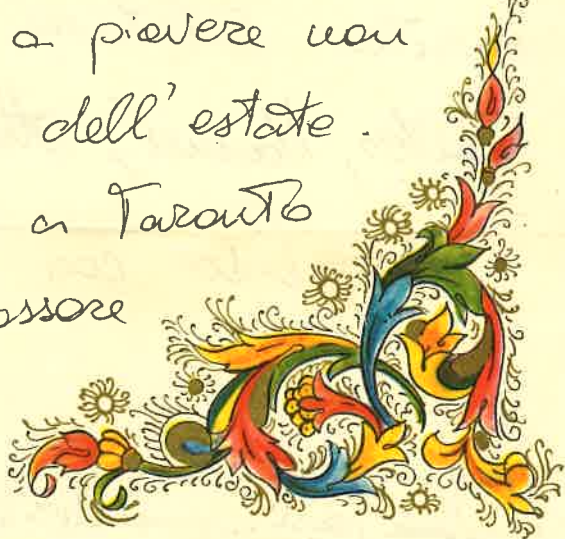 a piovere non
dell'estate.
a Taranto
ossore